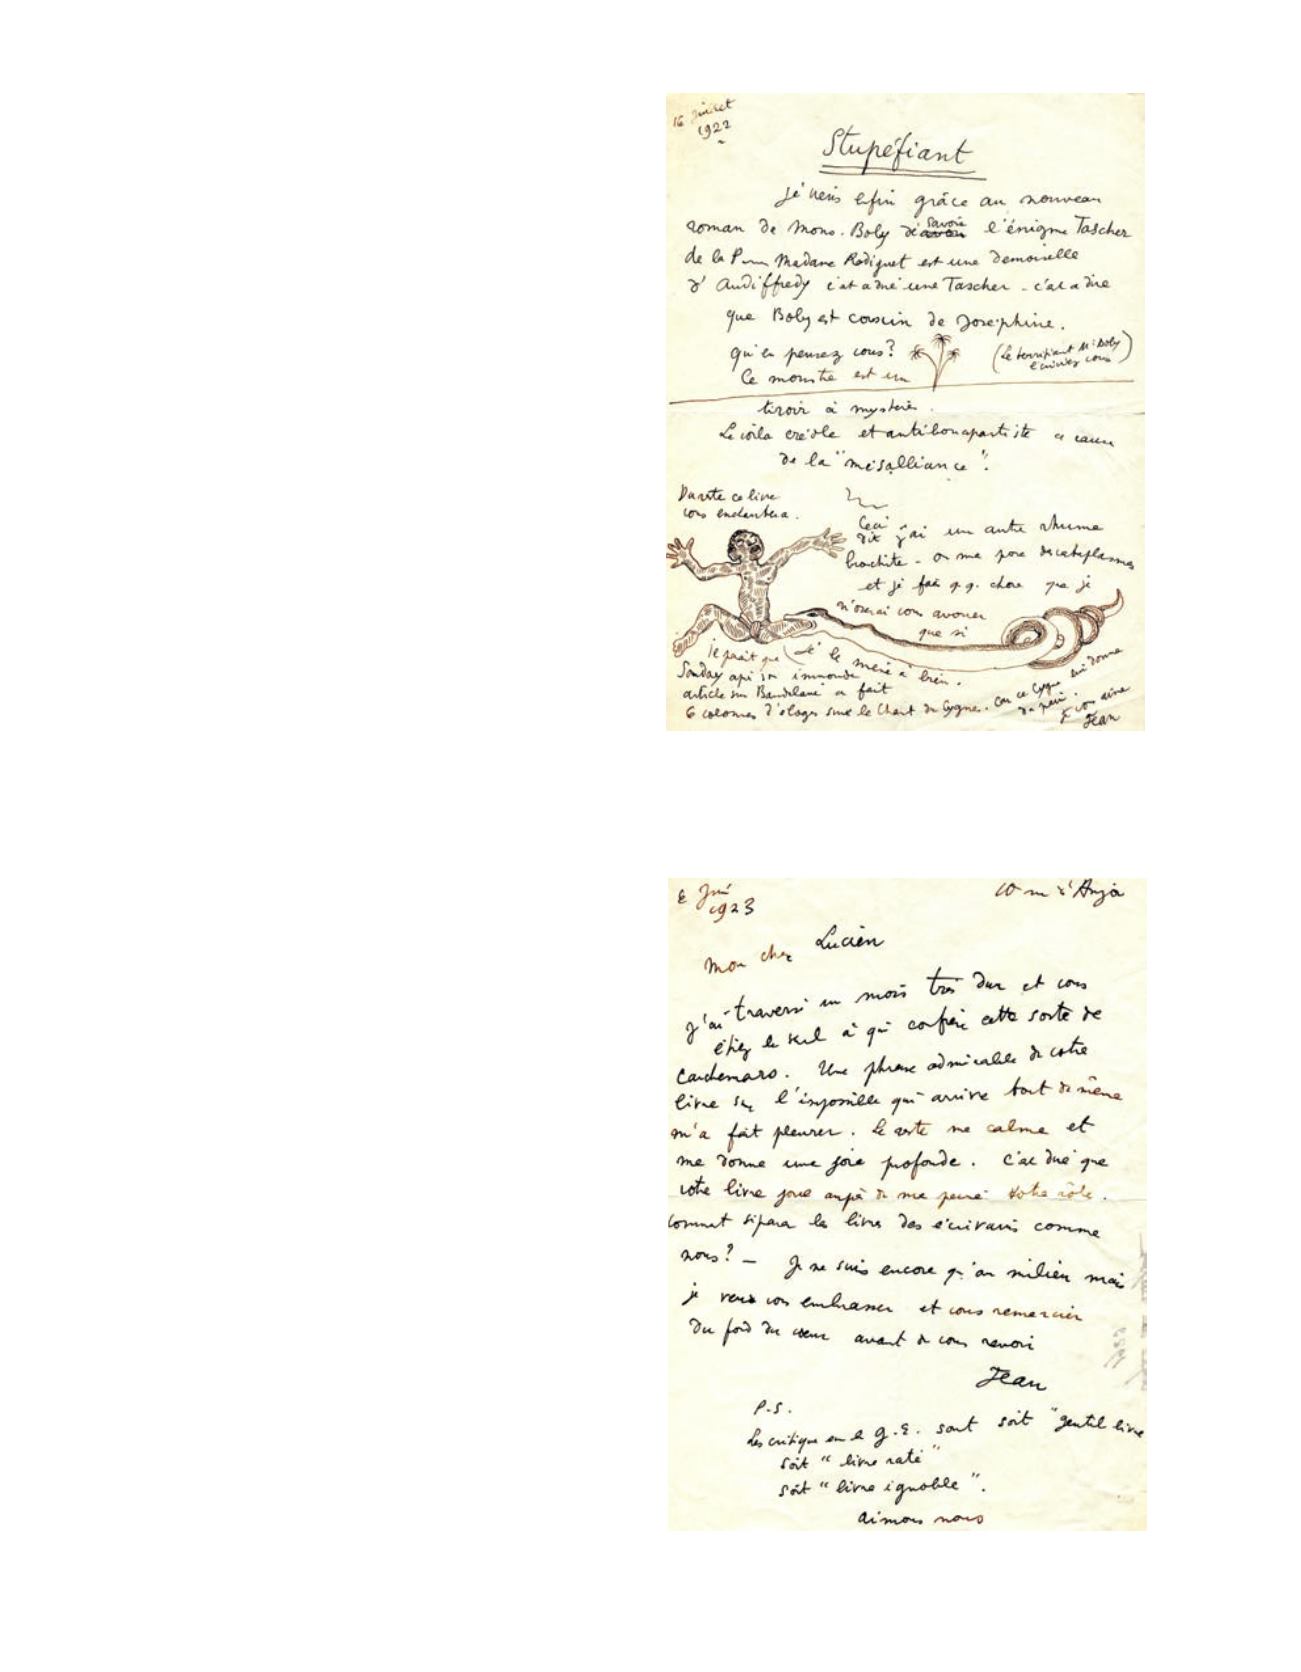 16 Juillet
1922
Stupéfiant
Je viens enfin grâce au nouveau
roman de Mons. Boby de savoir l'énigme Tascher
de la P Madame Radiguet est une demoiselle
d'Audiffredy c'est a dire une Tascher - c'est a dire
que Boby est cousin de Josephine.
qu'en pensez vous?
(Le terrifiant M: Boby
vous)
Ce monstre est un
tiroir à mystères.
Le voila créole et antibonapartiste a cause
de la "mésalliance".
Du reste ce livre
vous enchantera.
Ceci dit j'ai un autre rhume
bronchite - on me pose des cataplasmes
et je fais q.q. chose que je
n'oserai vous avouer
que si
je le mène à bien.
Il parait que
Souday après son immonde
article sur Baudelaire a fait
6 colonnes d'eloges sur le Chant du Cygne. Car ce Cygne lui donne
du pain.
Je vous aime
Jean
Juin
1923
10 rue d'Anjou
Mon cher Lucien
J'ai traversé un mois très dur et vous
étiez le seul à qui confier cette sorte de
cauchemars. Une phrase admirable de votre
livre sur l'impossible qui arrive tout de même
m'a fait pleurer. Le reste me calme et
me donne une joie profonde. C'est dire que
votre livre joue auprès de ma peine votre rôle.
Comment séparer les livres des écrivains comme
nous? - Je ne suis encore qu'au milieu mais
je veux vous embrasser et vous remercier
du fond du cœur avant de vous revoir
Jean
P.S.
Les critiques sur le G.E. sont soit "gentil livre
soit "livre raté"
soit "livre ignoble".
Aimons nous